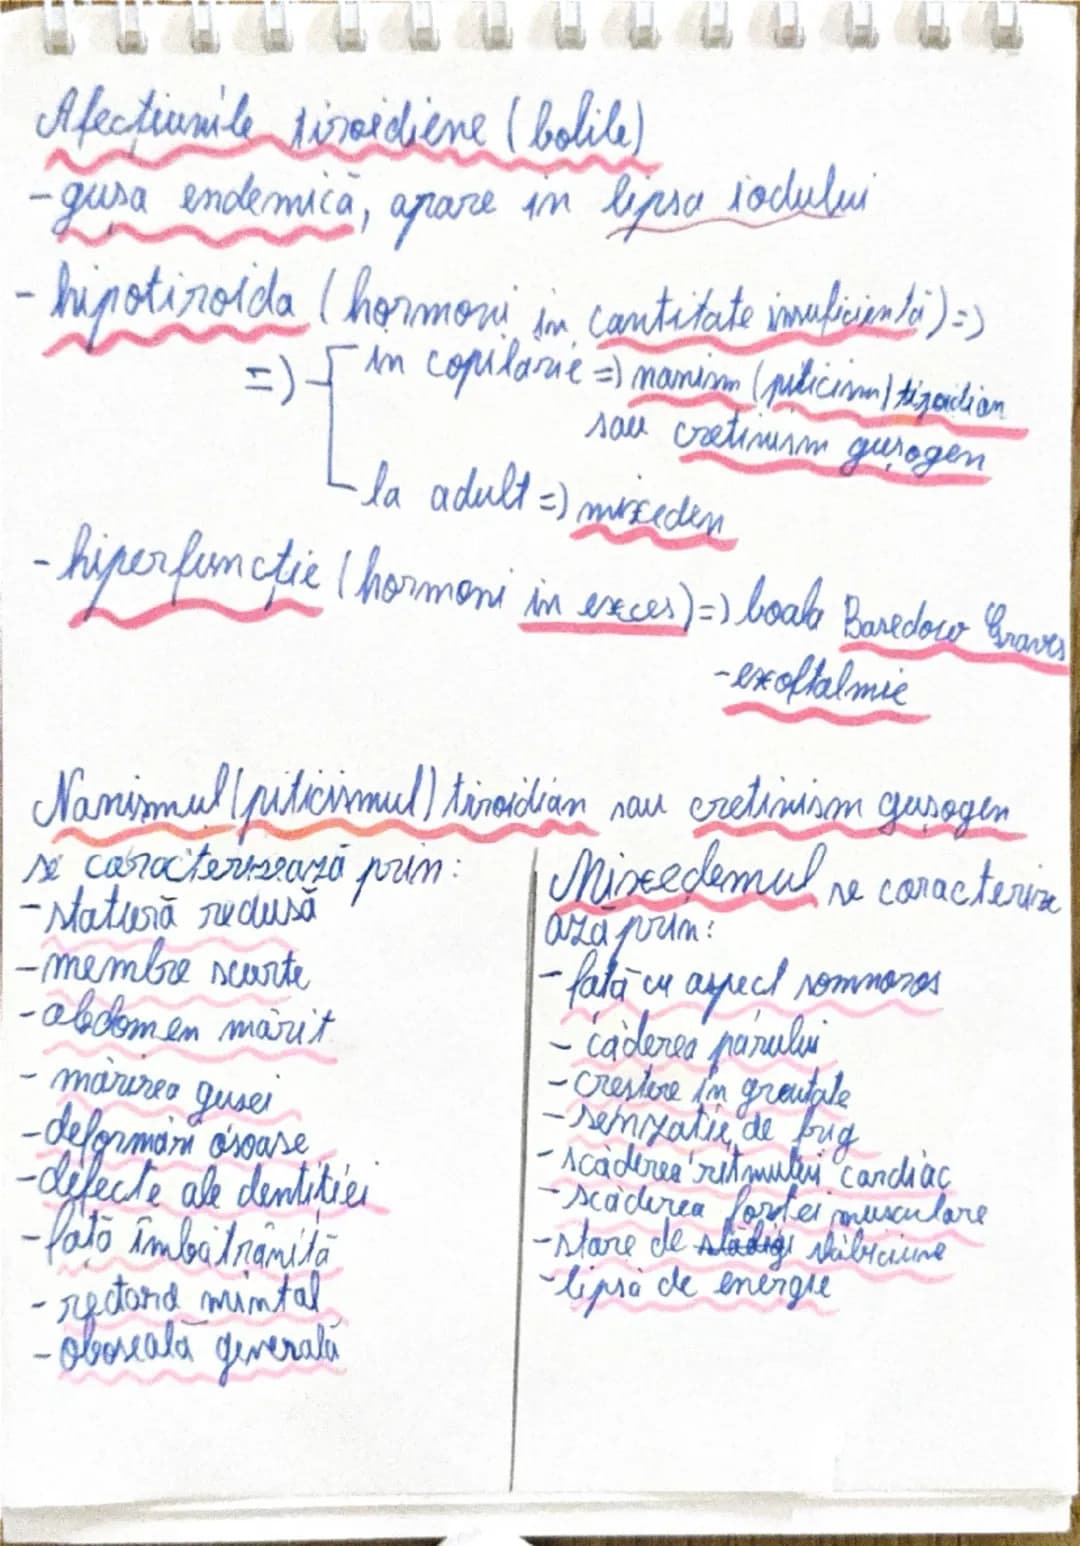 Afecțiunile tiroidiene (bolile)
- gușa endemică, apare in lipsa iodului
- hipotiroida (hormoni in cantitate insuficientă) =>
=> in copilarie => nanism (piticism) tiroidian
sau cretinism gușogen
la adult => mixeden
- hiperfuncție (hormoni in exces) => boala Basedow Graves
- exoftalmie
Nanismul (piticismul) tiroidian sau cretinism gușogen
se caracterizează prin:
- statură redusă
- membre scurte
- abdomen mărit
- mărirea gusei
- deformări osoase
- defecte ale dentitiei
- față îmbătrânită
- rectard mintal
- oboseală generală
Mixedemul se caracterize
ază prin:
- față cu aspect somnoros
- căderea părului
- crestere în greutate
- senzatie de frig
- scăderea ritmului cardiac
- scăderea forței musculare
- stare de slăbiciune
- lipsă de energie